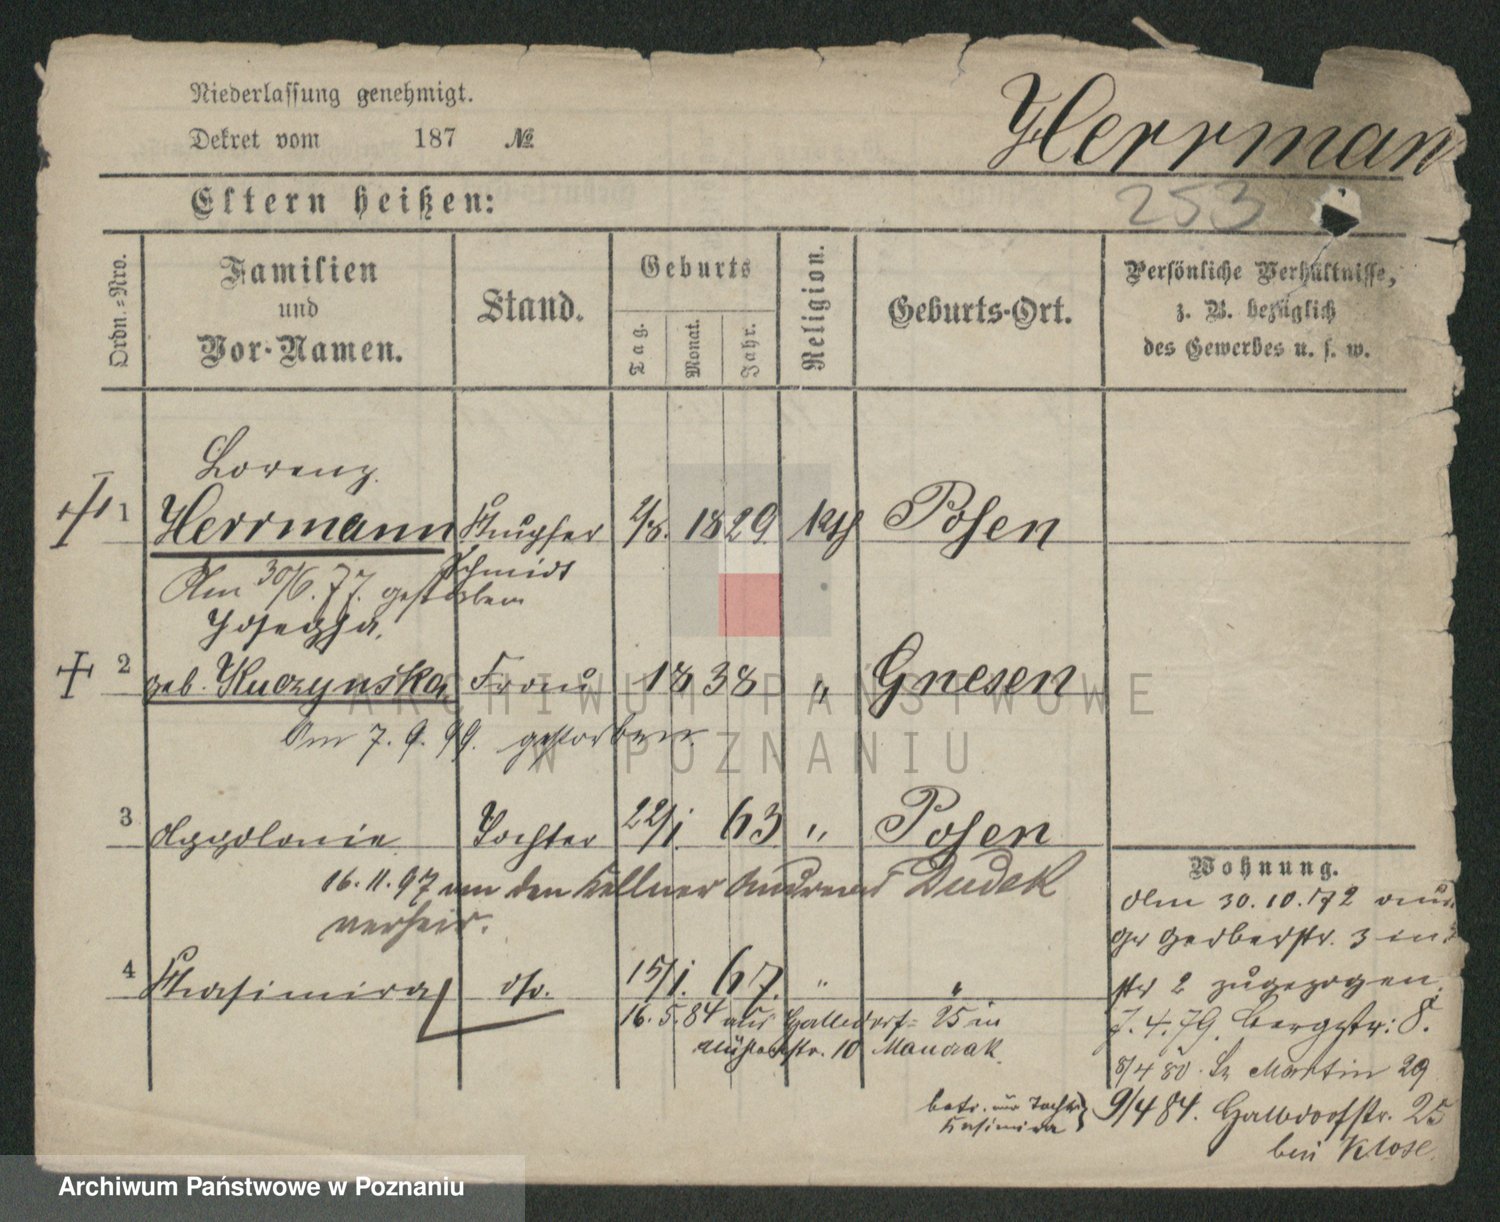 Niederlassung genehmigt.
Dekret vom 187 №
Herrmann
Eltern heißen:
253
Ordn.-Nro.
Familien
und
Vor-Namen.
Stand.
Geburts
Tag.
Monat.
Jahr.
Religion.
Geburts-Ort.
Persönliche Verhältnisse,
z. B. bezüglich
des Gewerbes u. s. w.
Lorenz
1 Herrmann Kupfer 2/8. 1829 kth Posen
schmidt
Am 30/6. 77. gestorben
Josepha,
2 geb. Kuczynska Frau 1838 " Gnesen
Am 7. 9. 99. gestorben.
3 Appolonie Tochter 22/1. 63 " Posen
16. 11. 97 an den Kellner Andreas Dudek
verheir.
4 Kasimira do. 15/1. 67. " "
16. 5. 84 aus Halbdorf= 25 in
Mühlenstr. 10
Wohnung.
Am 30. 10. 72 aus
gr Gerberstr. 3 in
str 2 zugezogen.
7. 4. 79. Bergstr: 8.
8/4 80. St Martin 29
betr. nur Tochter
Kasimira } 9/4 84. Halbdorfstr. 25
bei Klose.
ARCHIWUM PAŃSTWOWE
W POZNANIU
Archiwum Państwowe w Poznaniu